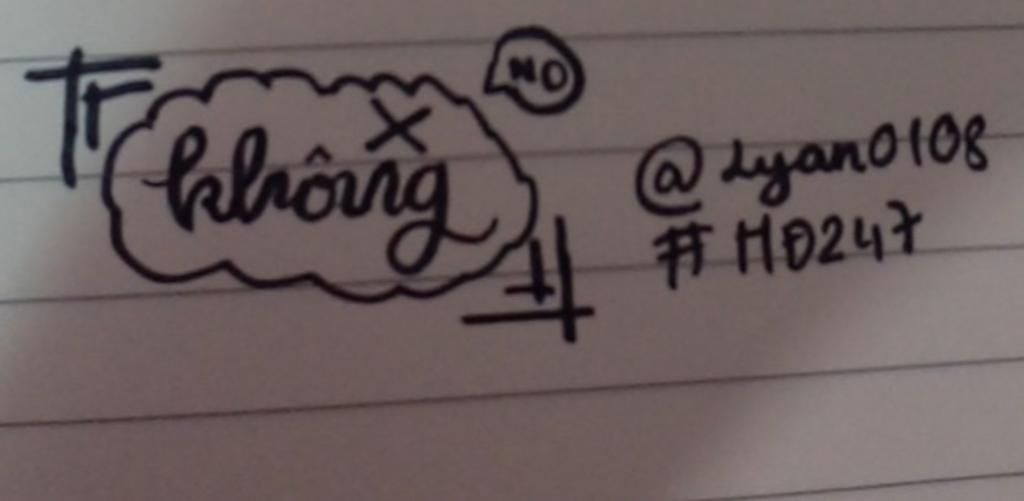 NO
không
@Lyan0108
#HD247